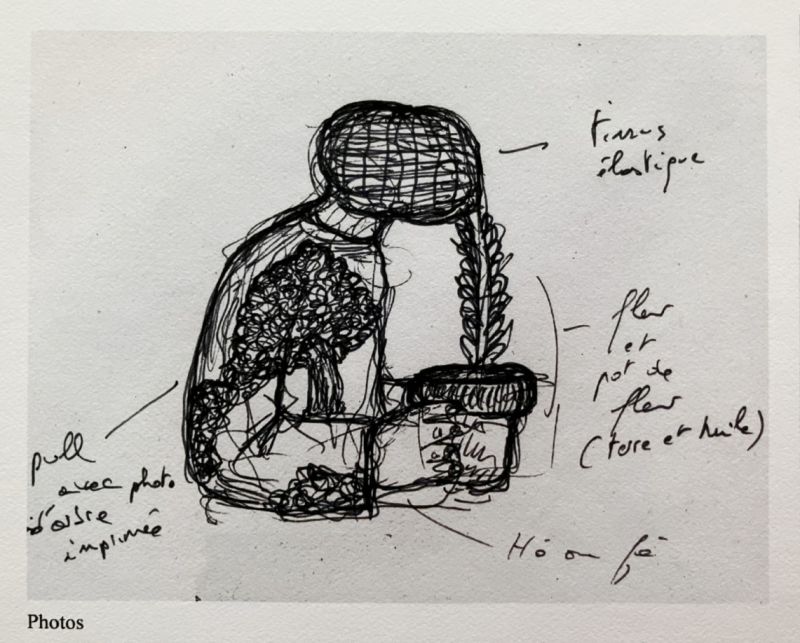 Tissus
élastique
fleur
et
pot de
fleur
(terre et huile)
pull
avec photo
d'arbre
imprimée
Photos